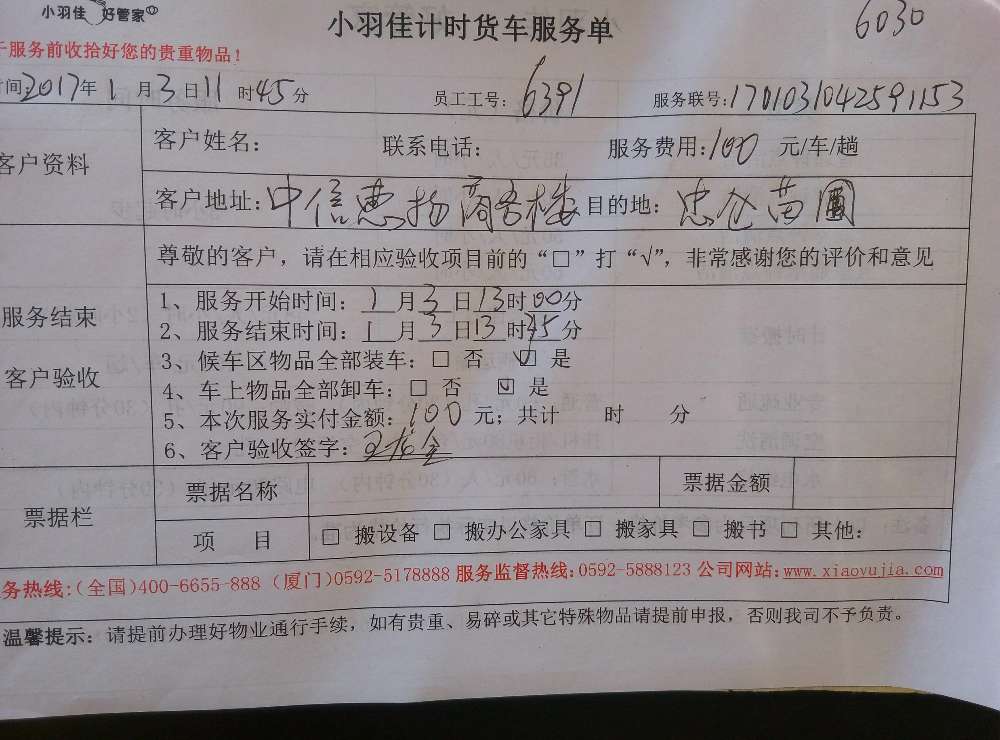 小羽佳 好管家
小羽佳计时货车服务单
6030
服务前收拾好您的贵重物品！
间:2017年1月3日11时45分 员工工号:6391 服务联号:1701031042591153
客户资料
客户姓名: 联系电话: 服务费用:100 元/车/趟
客户地址:中信惠扬商务楼 目的地: 忠仑苗圃
服务结束
客户验收
尊敬的客户，请在相应验收项目前的“□”打“√”，非常感谢您的评价和意见
1、服务开始时间: 1月3日13时00分
2、服务结束时间: 1月3日13时45分
3、候车区物品全部装车: □ 否 ☑ 是
4、车上物品全部卸车: □ 否 ☑ 是
5、本次服务实付金额:100元; 共计 时 分
6、客户验收签字:
票据栏
票据名称 票据金额
项 目 □ 搬设备 □ 搬办公家具 □ 搬家具 □ 搬书 □ 其他:
务热线:(全国)400-6655-888 (厦门)0592-5178888 服务监督热线:0592-5888123 公司网站:www.xiaoyujia.com
温馨提示: 请提前办理好物业通行手续，如有贵重、易碎或其它特殊物品请提前申报，否则我司不予负责。